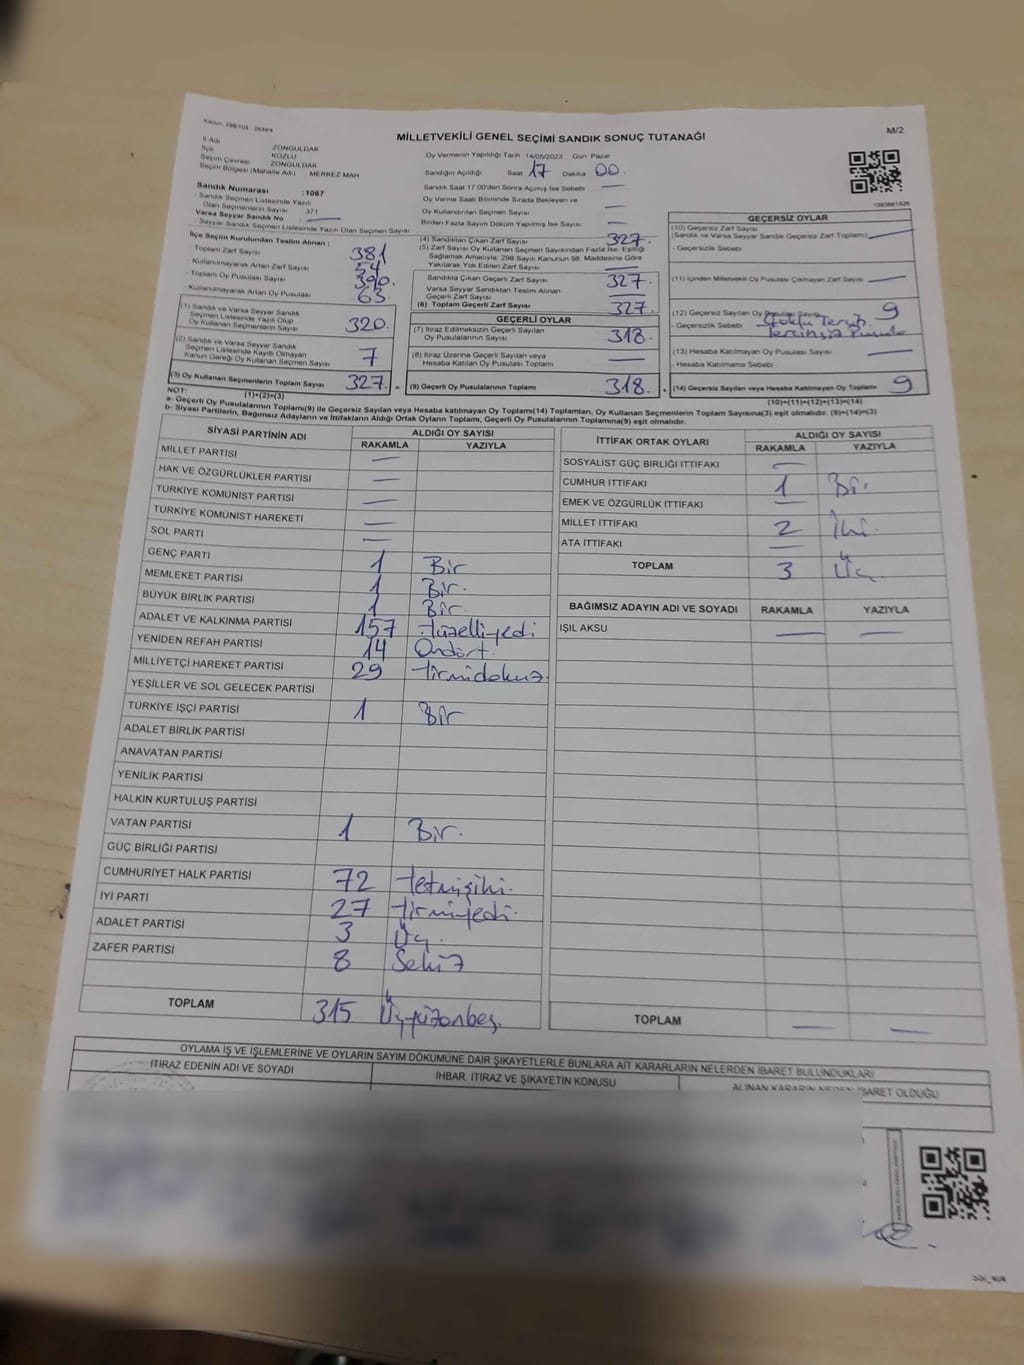 MİLLETVEKİLİ GENEL SEÇİMİ SANDIK SONUÇ TUTANAĞI
M/2
İl Adı ZONGULDAK
İlçe KOZLU
Seçim Çevresi ZONGULDAK
Seçim Bölgesi (Mahalle Adı) MERKEZ MAH
Sandık Numarası : 1067
- Sandık Seçmen Listesinde Yazılı
Olan Seçmenlerin Sayısı 371
Varsa Seyyar Sandık No
- Seyyar Sandık Seçmen Listesinde Yazılı Olan Seçmen Sayısı
Oy Vermenin Yapıldığı Tarih 14/05/2023 Gün: Pazar
Sandığın Açıldığı Saat 17 Dakika 00
Sandık Saat 17.00'den Sonra Açılmış İse Sebebi —
Oy Verme Saati Bitiminde Sırada Bekleyen ve
Oy Kullandırılan Seçmen Sayısı —
Birden Fazla Sayım Döküm Yapılmış İse Sayısı —
İlçe Seçim Kurulundan Teslim Alınan ;
- Toplam Zarf Sayısı 381
- Kullanılmayarak Artan Zarf Sayısı 54
- Toplam Oy Pusulası Sayısı 390.
- Kullanılmayarak Artan Oy Pusulası 63.
(1) Sandık ve Varsa Seyyar Sandık
Seçmen Listesinde Yazılı Olup
Oy Kullanan Seçmenlerin Sayısı 320.
(2) Sandık ve Varsa Seyyar Sandık
Seçmen Listesinde Kayıtlı Olmayan
Kanun Gereği Oy Kullanan Seçmen Sayısı 7
(3) Oy Kullanan Seçmenlerin Toplam Sayısı 327.
(1)+(2)=(3)
(4) Sandıktan Çıkan Zarf Sayısı 327.
(5) Zarf Sayısı Oy Kullanan Seçmen Sayısından Fazla İse, Eşitliği
Sağlamak Amacıyla, 298 Sayılı Kanunun 98. Maddesine Göre
Yakılarak Yok Edilen Zarf Sayısı —
Sandıkta Çıkan Geçerli Zarf Sayısı 327.
Varsa Seyyar Sandıktan Teslim Alınan
Geçerli Zarf Sayısı —
(6) Toplam Geçerli Zarf Sayısı 327.
GEÇERLİ OYLAR
(7) İtiraz Edilmeksizin Geçerli Sayılan
Oy Pusulalarının Sayısı 318.
(8) İtiraz Üzerine Geçerli Sayılan veya
Hesaba Katılan Oy Pusulası Toplamı —
= (9) Geçerli Oy Pusulalarının Toplamı 318.
GEÇERSİZ OYLAR
(10) Geçersiz Zarf Sayısı
(Sandık ve Varsa Seyyar Sandık Geçersiz Zarf Toplamı) —
- Geçersizlik Sebebi
(11) İçinden Milletvekili Oy Pusulası Çıkmayan Zarf Sayısı —
(12) Geçersiz Sayılan Oy Pusulası Sayısı 9
- Geçersizlik Sebebi Çoklu Tercih. Tercihsiz Pusula
(13) Hesaba Katılmayan Oy Pusulası Sayısı —
- Hesaba Katılmama Sebebi
+ (14) Geçersiz Sayılan veya Hesaba Katılmayan Oy Toplamı 9
(10)+(11)+(12)+(13)=(14)
NOT:
a- Geçerli Oy Pusulalarının Toplamı(9) ile Geçersiz Sayılan veya Hesaba katılmayan Oy Toplamı(14) Toplamları, Oy Kullanan Seçmenlerin Toplam Sayısına(3) eşit olmalıdır. (9)+(14)=(3)
b- Siyasi Partilerin, Bağımsız Adayların ve İttifakların Aldığı Ortak Oyların Toplamı, Geçerli Oy Pusulalarının Toplamına(9) eşit olmalıdır.
SİYASİ PARTİNİN ADI ALDIĞI OY SAYISI
RAKAMLA YAZIYLA
MİLLET PARTİSİ —
HAK VE ÖZGÜRLÜKLER PARTİSİ —
TÜRKİYE KOMÜNİST PARTİSİ —
TÜRKİYE KOMÜNİST HAREKETİ —
SOL PARTİ —
GENÇ PARTİ 1 Bir
MEMLEKET PARTİSİ 1 Bir.
BÜYÜK BİRLİK PARTİSİ 1 Bir.
ADALET VE KALKINMA PARTİSİ 157 Yüzelliyedi
YENİDEN REFAH PARTİSİ 14 Ondört.
MİLLİYETÇİ HAREKET PARTİSİ 29 Yirmidokuz.
YEŞİLLER VE SOL GELECEK PARTİSİ
TÜRKİYE İŞÇİ PARTİSİ 1 Bir
ADALET BİRLİK PARTİSİ
ANAVATAN PARTİSİ
YENİLİK PARTİSİ
HALKIN KURTULUŞ PARTİSİ
VATAN PARTİSİ 1 Bir.
GÜÇ BİRLİĞİ PARTİSİ
CUMHURİYET HALK PARTİSİ 72 Yetmişiki.
İYİ PARTİ 27 Yirmiyedi.
ADALET PARTİSİ 3 Üç.
ZAFER PARTİSİ 8 Sekiz
TOPLAM 315 Üçyüzonbeş.
İTTİFAK ORTAK OYLARI ALDIĞI OY SAYISI
RAKAMLA YAZIYLA
SOSYALİST GÜÇ BİRLİĞİ İTTİFAKI —
CUMHUR İTTİFAKI 1 Bir.
EMEK VE ÖZGÜRLÜK İTTİFAKI —
MİLLET İTTİFAKI 2 İki.
ATA İTTİFAKI —
TOPLAM 3 Üç.
BAĞIMSIZ ADAYIN ADI VE SOYADI RAKAMLA YAZIYLA
IŞIL AKSU — —
TOPLAM — —
OYLAMA İŞ VE İŞLEMLERİNE VE OYLARIN SAYIM DÖKÜMÜNE DAİR ŞİKAYETLERLE BUNLARA AİT KARARLARIN NELERDEN İBARET BULUNDUKLARI
İTİRAZ EDENİN ADI VE SOYADI İHBAR, İTİRAZ VE ŞİKAYETİN KONUSU ALINAN KARARIN NEDEN İBARET OLDUĞU